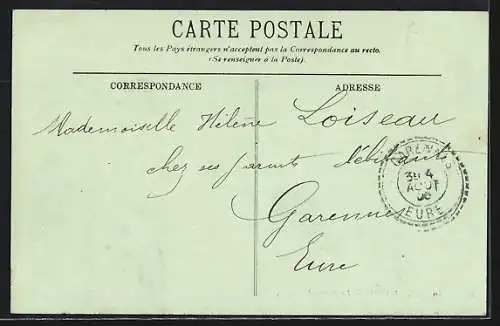 CARTE POSTALE
Tous les Pays étrangers n'acceptent pas la Correspondance au recto.
(Se renseigner à la Poste).
CORRESPONDANCE
ADRESSE
Mademoiselle Hélène Loiseau
chez ses parents débitants
Garennes
Eure
GARENNES
4
AOUT
06
EURE